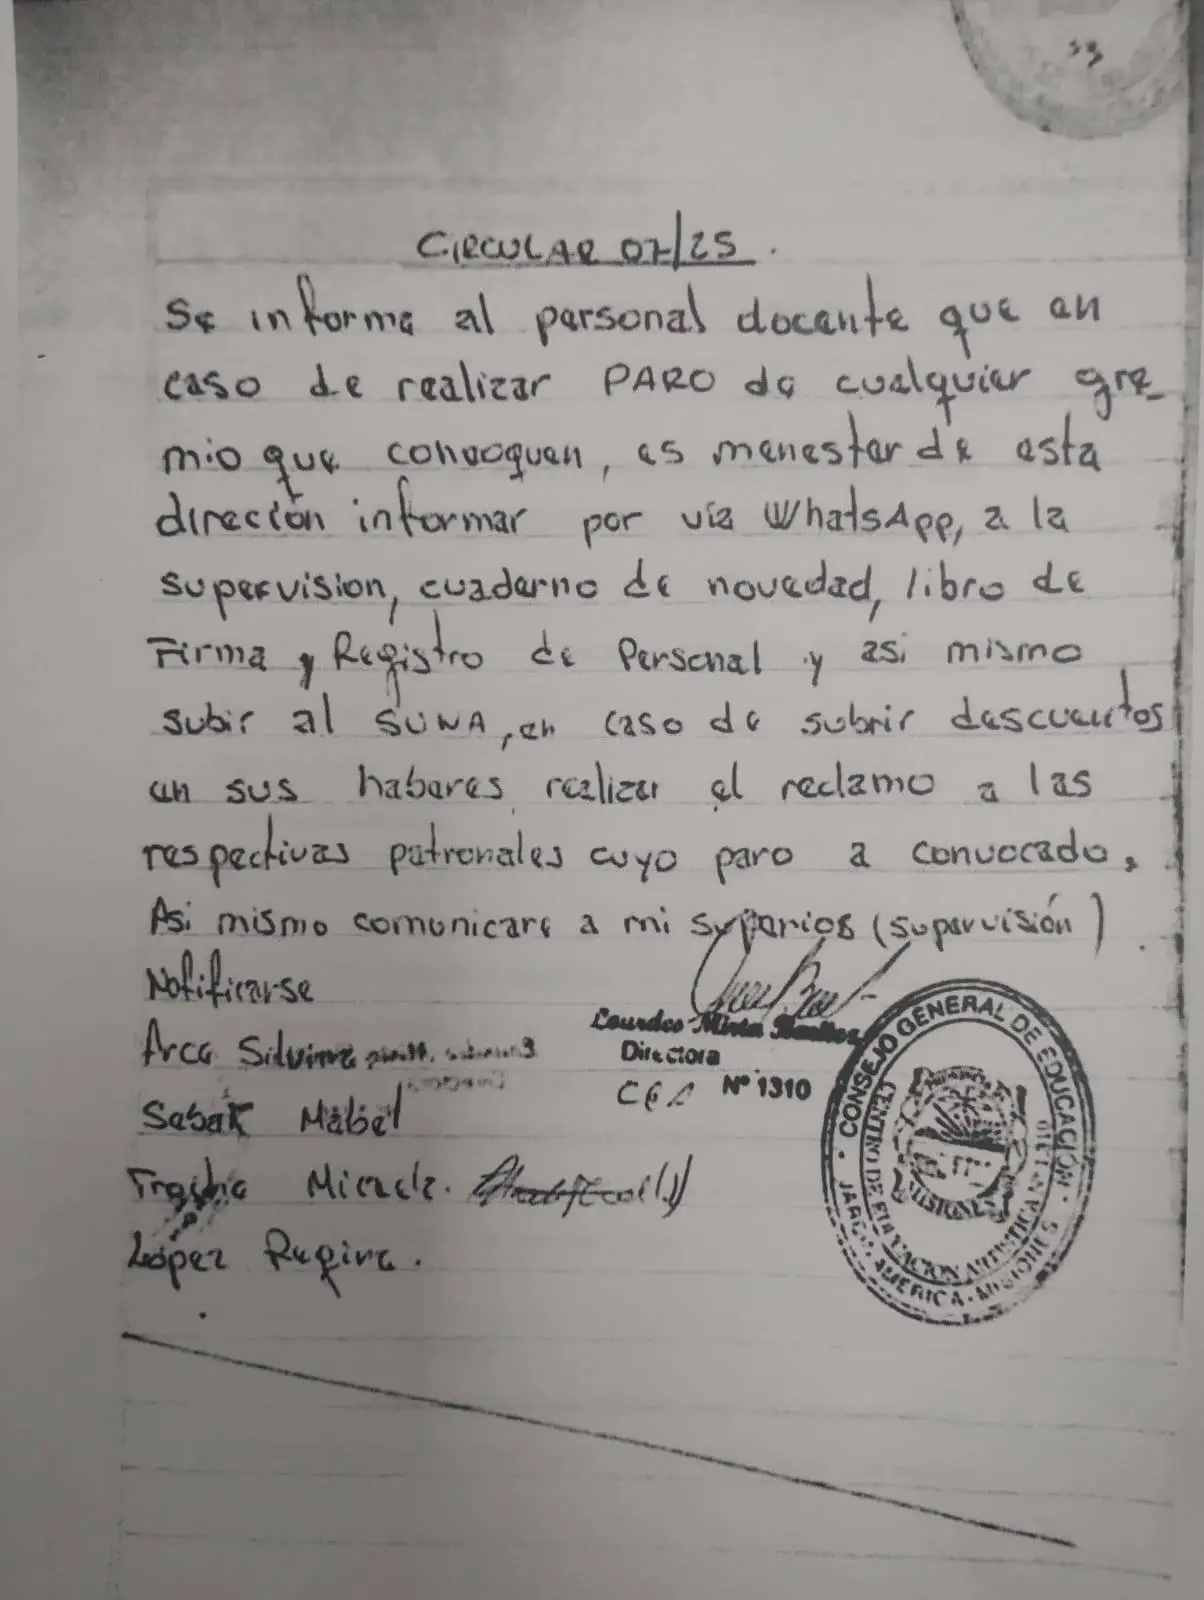 33
CIRCULAR 07/25.
Se informa al personal docente que en
caso de realizar PARO de cualquier gre_
mio que convoquen, es menester de esta
direción informar por vía WhatsApp, a la
supervision, cuaderno de novedad, libro de
Firma y Registro de Personal y asi mismo
subir al SUNA, en caso de subrir descuentos
en sus haberes realizar el reclamo a las
respectivas patronales cuyo paro a convocado,
Asi mismo comunicare a mi superios (supervisión)
Notificarse
Lourdes Mirta
Arce Silvina
Directora
CEA Nº 1310
Sabat Mabel
Micaela.
López Regina.
CONSEJO GENERAL DE EDUCACIÓN
CENTRO DE EDUCACION ARTISTICA Nº 1310
JARDIN AMERICA - MISIONES
MISIONES